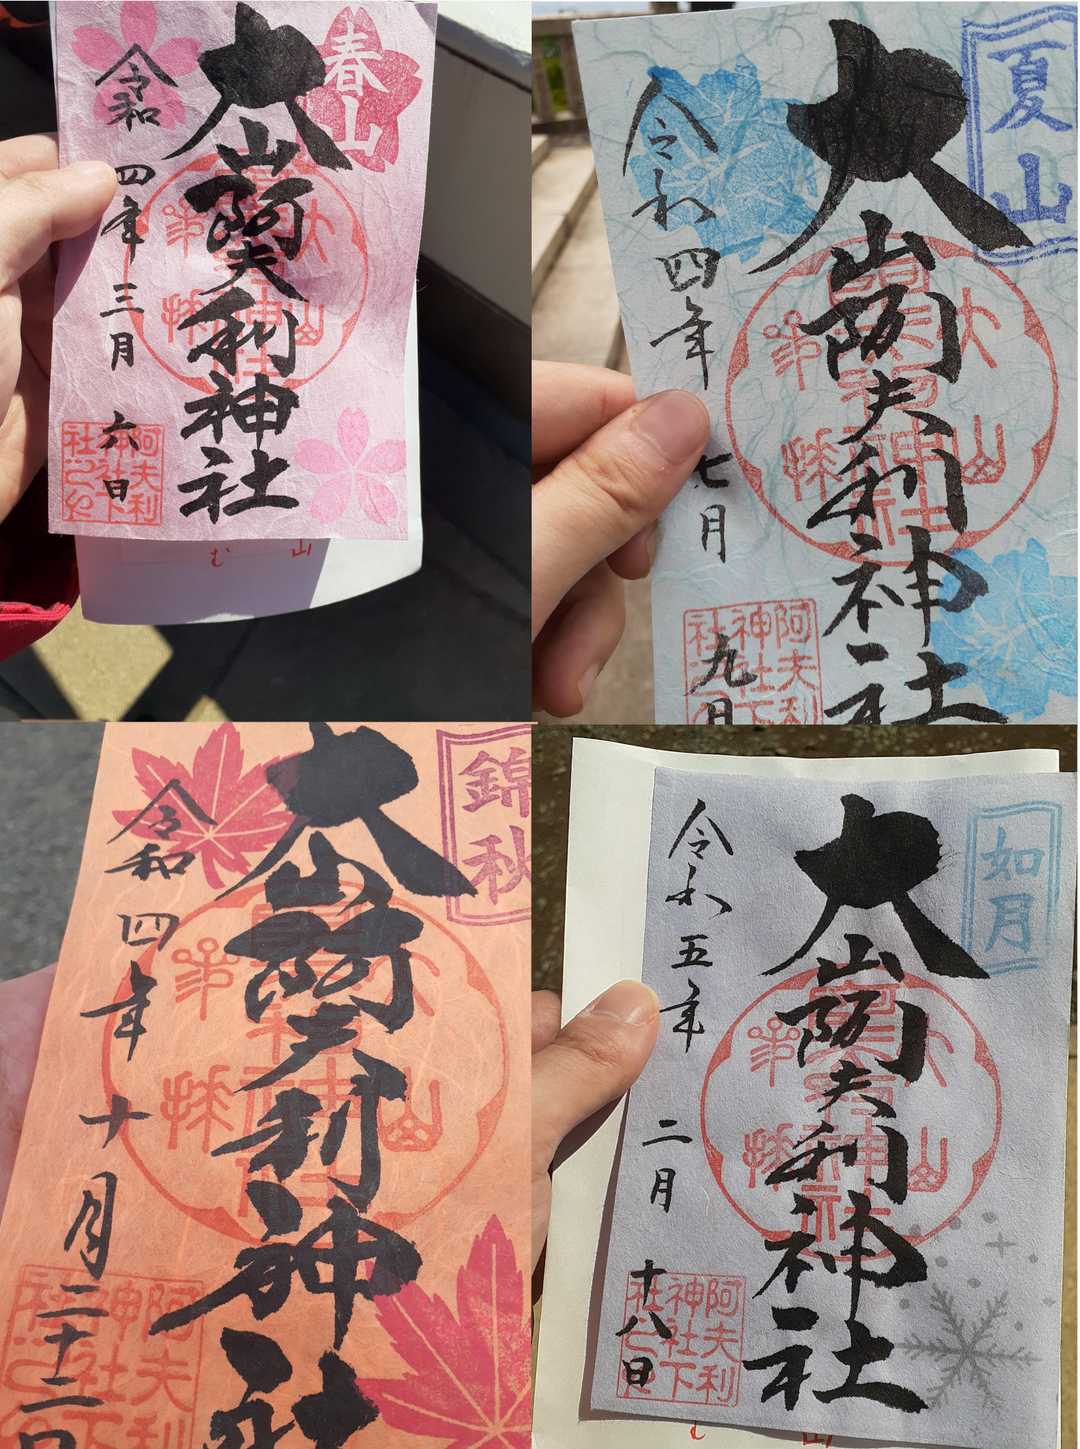 春山
大山阿夫利神社
令和四年三月六日
阿夫利
神社下
社之印
夏山
大山阿夫利神社
令和四年七月九日
錦秋
大山阿夫利神社
令和四年十月二十二日
阿夫利
神社下
如月
大山阿夫利神社
令和五年二月十八日
阿夫利
神社下
社之印